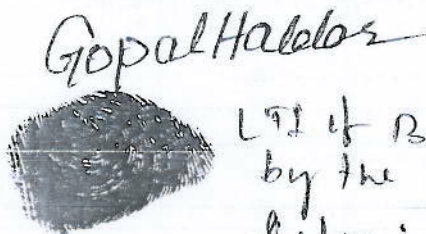 Gopal Haldar
LTI of B
by the